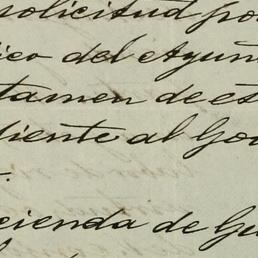 solicitud po
ico del Ayun
tamen de es
diente al Go
cienda de Gu